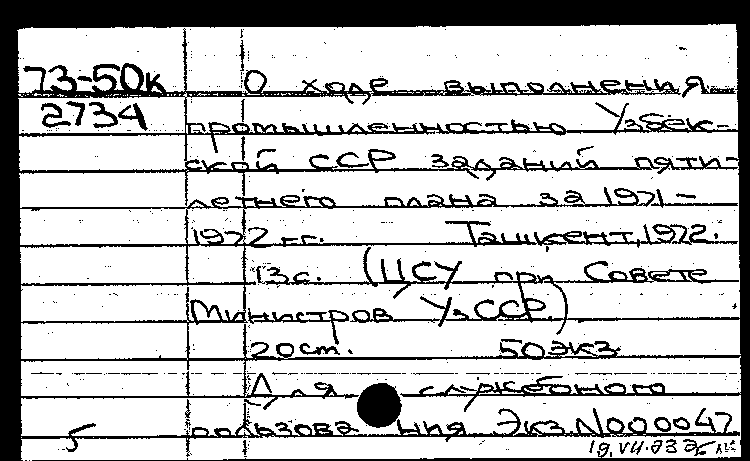 73-50к О ходе выполнения
2734 промышленностью Узбек-
ской ССР заданий пяти-
летнего плана за 1971-
1972 гг. Ташкент, 1972.
13 с. (ЦСУ при Совете
Министров УзССР.)
20 см. 50 экз
Для служебного
5 пользования Экз. N000047
19.VII.73